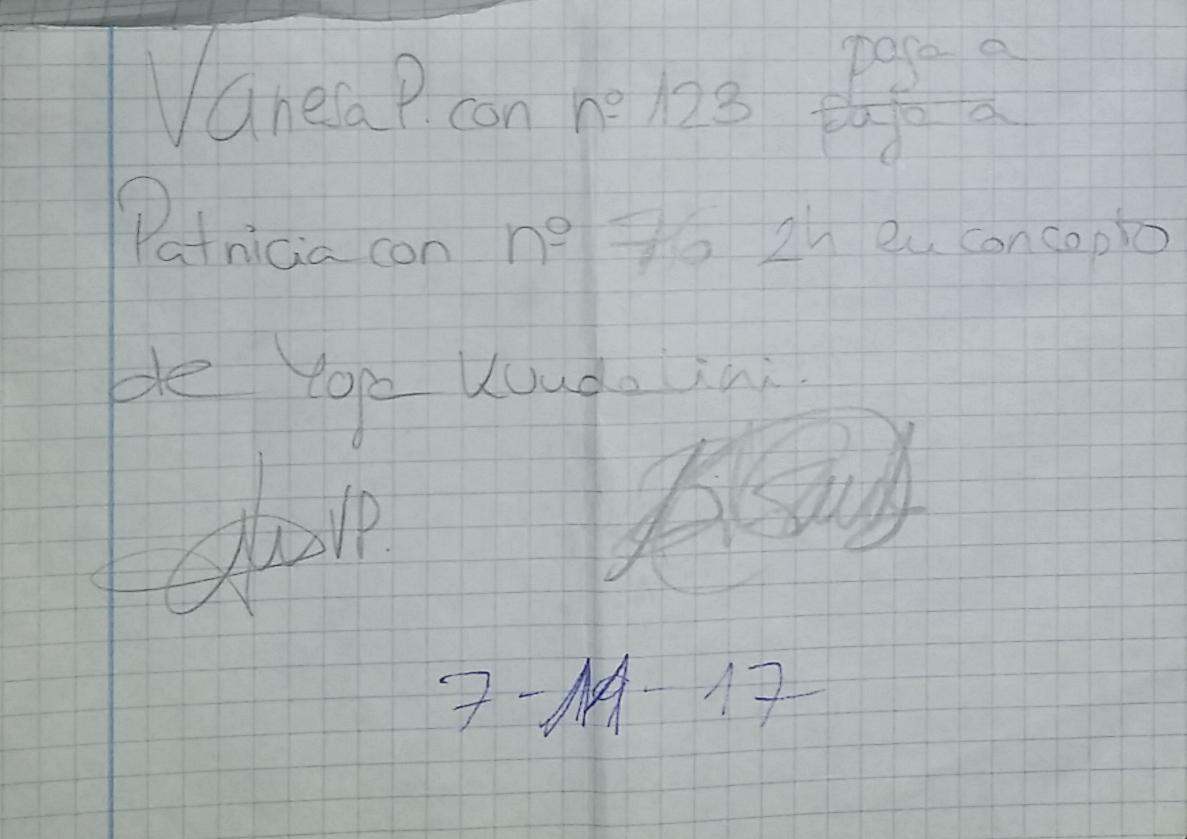 Vanesa P. con nº 123 paga a
Patricia con nº 76 2h en concepto
de Yoga Kundalini.
VP.
7-11-17